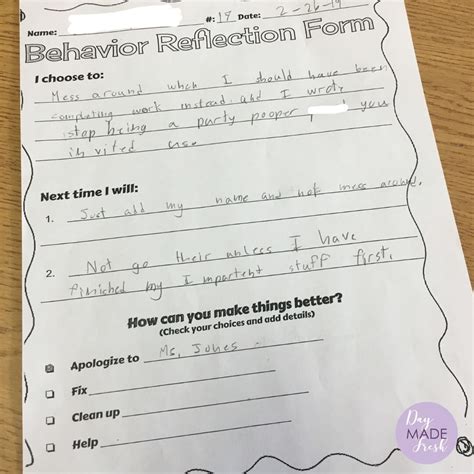 Name: #: 19 Date: 2-26-19
Behavior Reflection Form
I choose to:
Mess around when I should have been
completing work instead and I wrote
stop being a party pooper, and you
invited use.
Next time I will:
1. Just add my name and not mess around.
2. Not go their unless I have
finished my I mpartent stuff first.
How can you make things better?
(Check your choices and add details)
Apologize to Ms. Jones
Fix
Clean up
Help
Day
MADE
Fresh